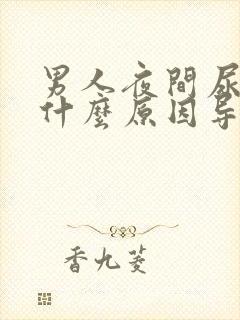 男人夜間尿
什麼原因导
香九菱